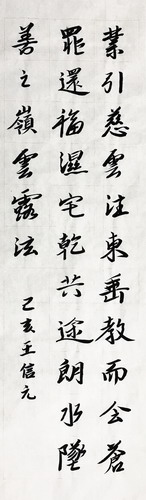 業引慈雲注東垂教而全蒼
罪還福濕宅乾共途朗水墜
善之嶺雲露泫
己亥王信元